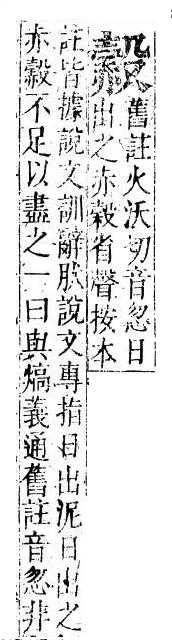 舊註火沃切音忽日
出之赤穀省聲按本
註皆據說文訓辭肰說文專指日出況日出之
赤不足以盡之一曰與熇義通舊註音忽非